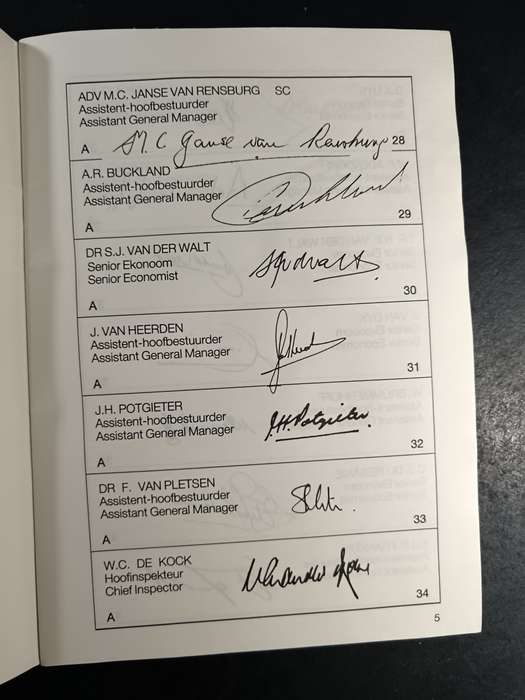 ADV M.C. JANSE VAN RENSBURG SC
Assistent-hoofbestuurder
Assistant General Manager
A M.C Janse van Rensburg 28
A.R. BUCKLAND
Assistent-hoofbestuurder
Assistant General Manager
A 29
DR S.J. VAN DER WALT
Senior Ekonoom
Senior Economist
A 30
J. VAN HEERDEN
Assistent-hoofbestuurder
Assistant General Manager
A 31
J.H. POTGIETER
Assistent-hoofbestuurder
Assistant General Manager
J.H. Potgieter
A 32
DR F. VAN PLETSEN
Assistent-hoofbestuurder
Assistant General Manager
A 33
W.C. DE KOCK
Hoofinspekteur
Chief Inspector
A 34
5